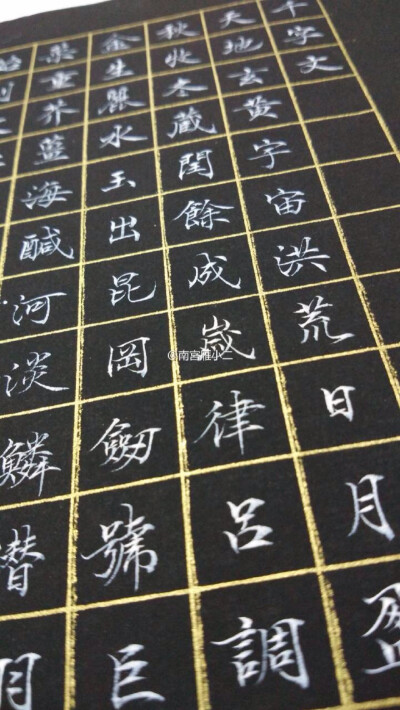 千字文
天地玄黄宇宙洪荒日月盈
秋收冬藏閏餘成歲律呂調
金生麗水玉出昆岡劒號巨
菜重芥藍海鹹河淡鱗潛